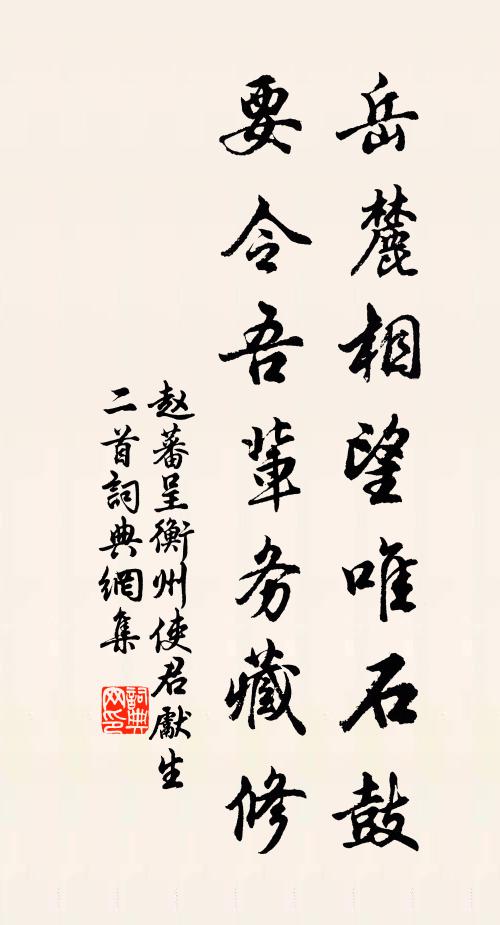 岳麓相望唯石鼓
要令吾輩务藏修
赵蕃呈衡州使君獻生
二首詞典網集
詞典网印